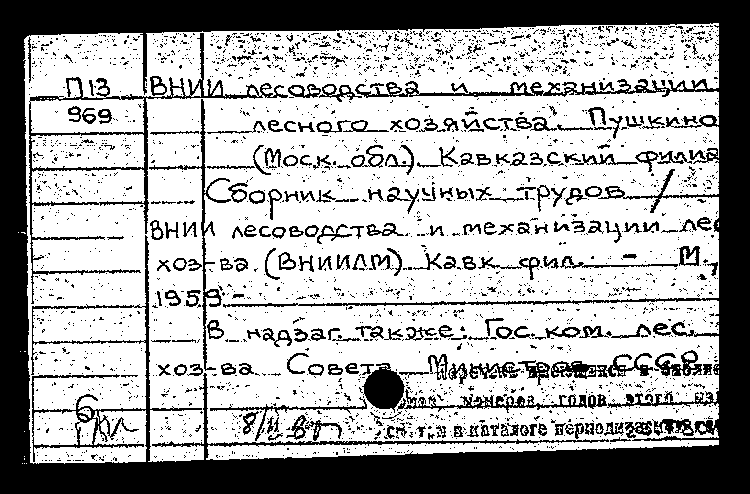 П13 ВНИИ лесоводства и механизации
969 лесного хозяйства. Пушкино
(Моск. обл.). Кавказский филиа
Сборник научных трудов /
ВНИИ лесоводства и механизации лес
хоз-ва (ВНИИЛМ) Кавк фил. - М.,
1959 -
В надзаг. также: Гос ком. лес.
хоз-ва Совета Министров СССР
номеров, годов этого
см. т.ж в каталоге